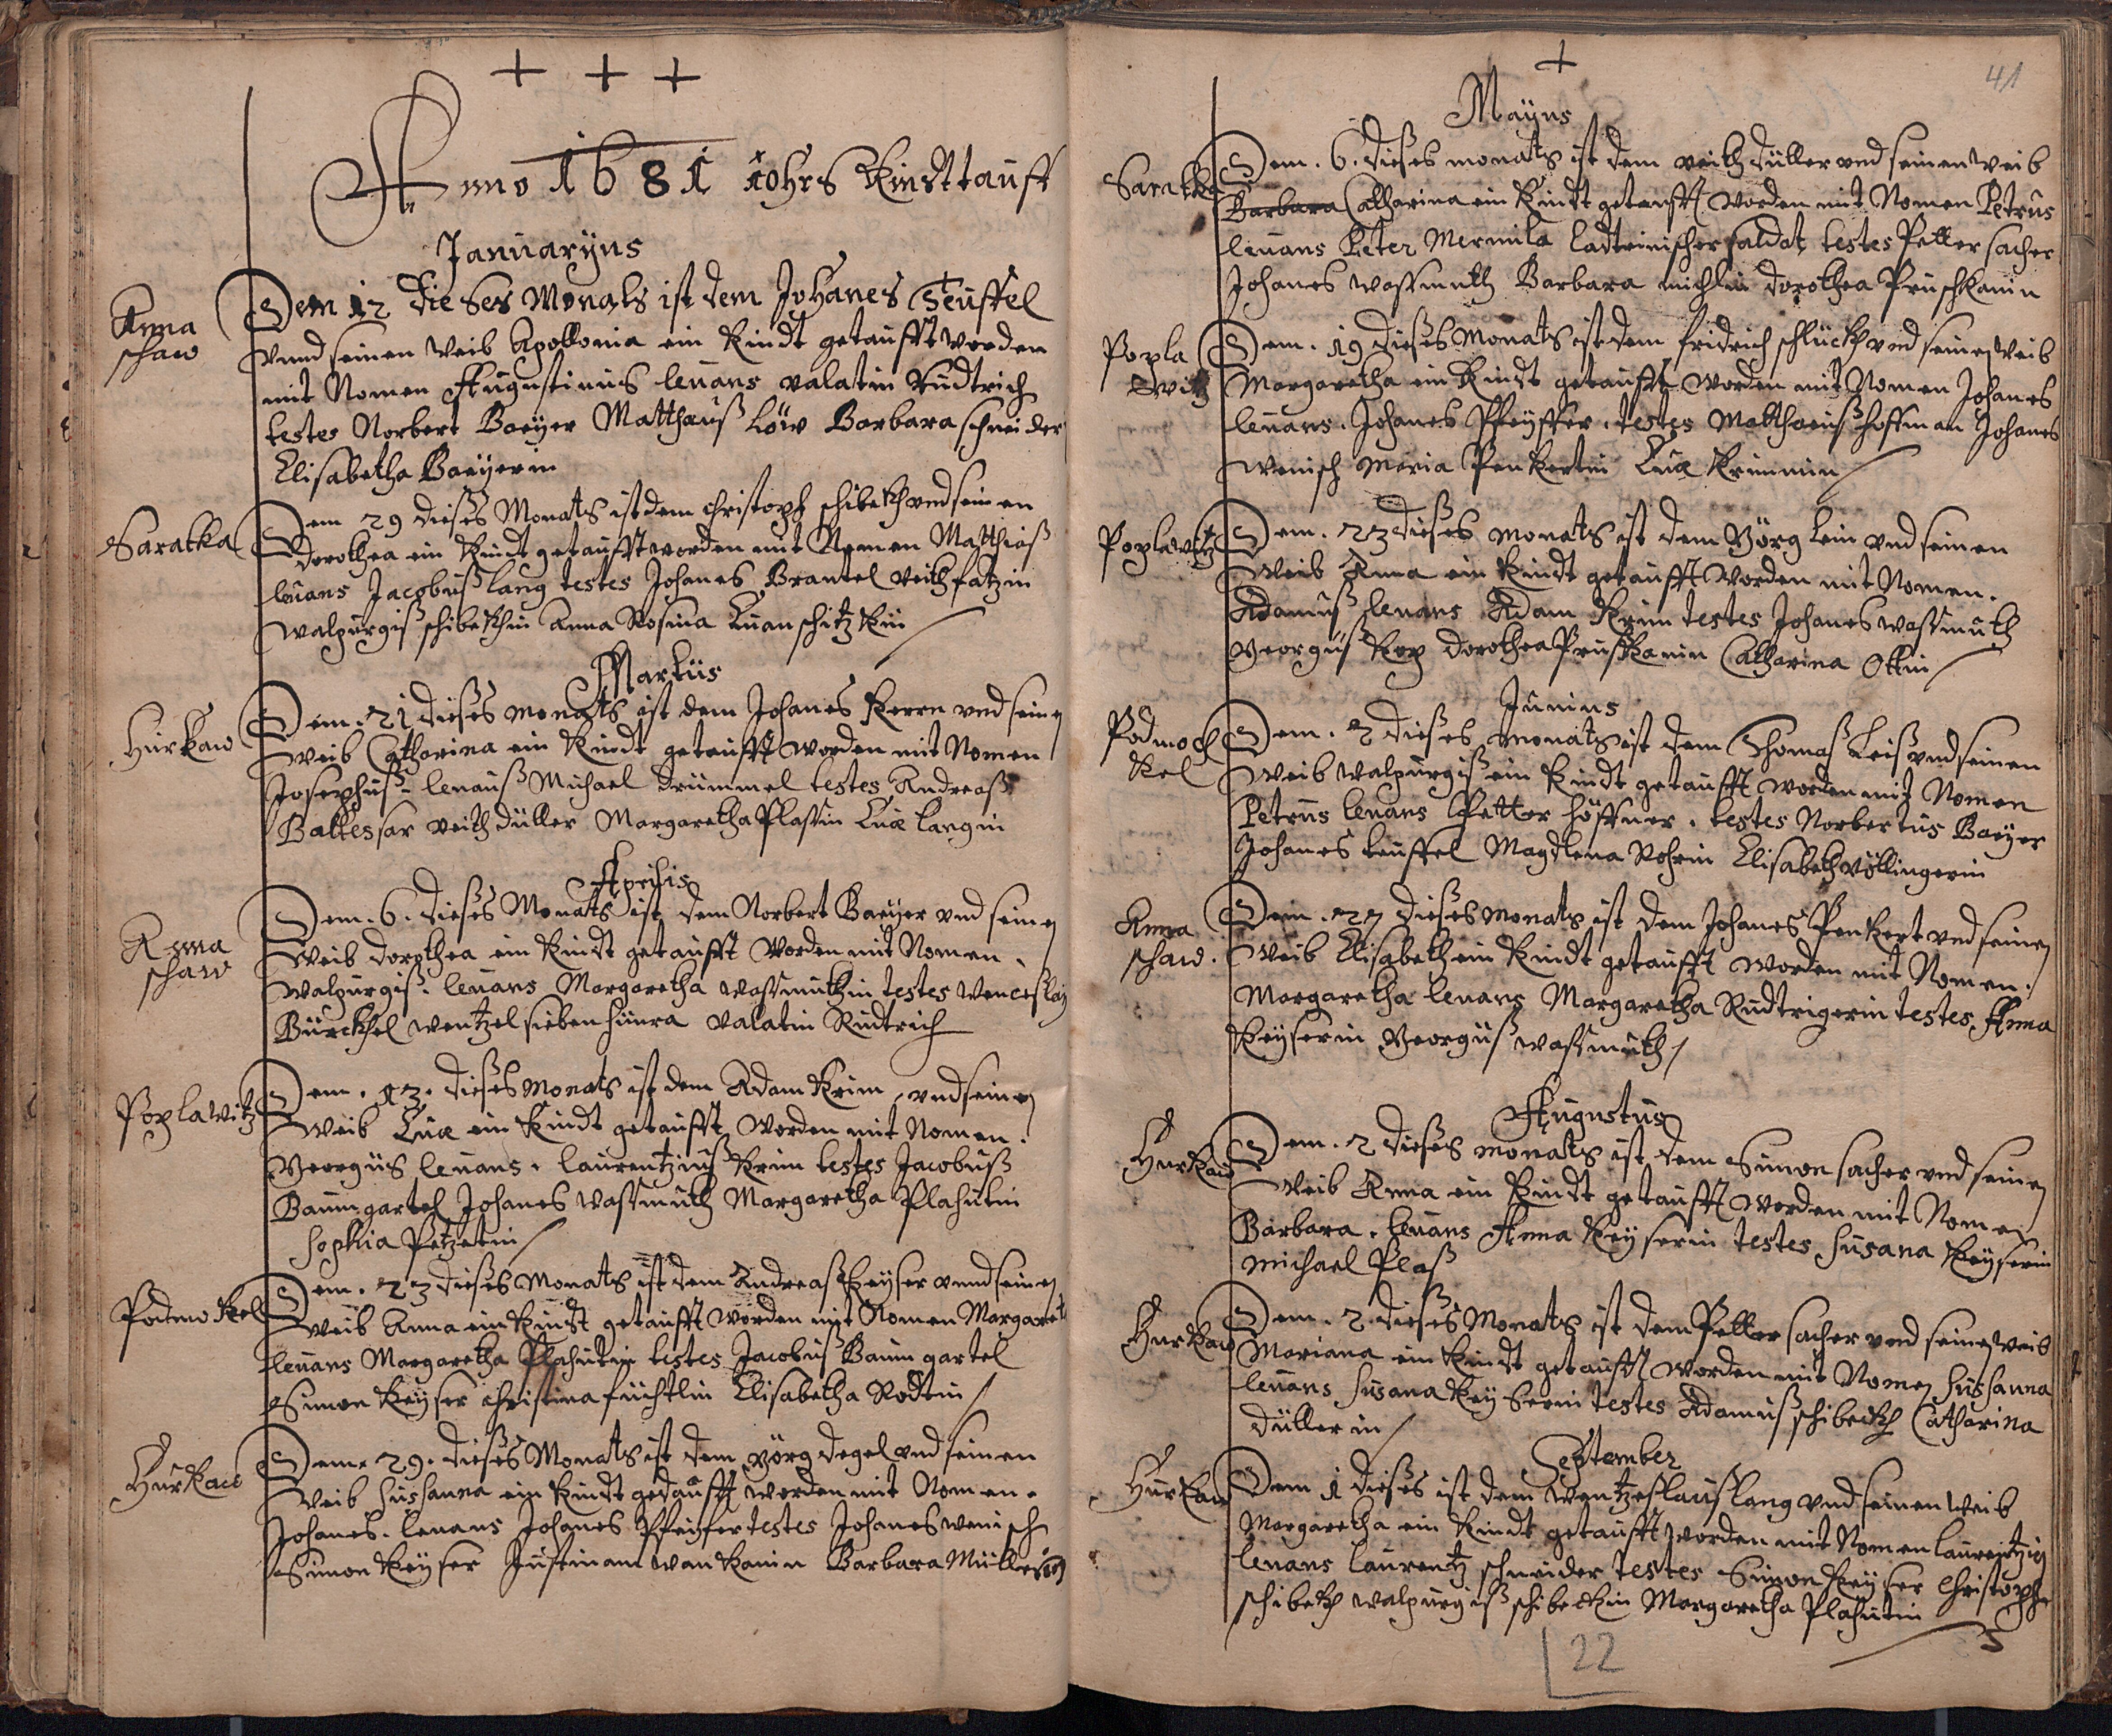 + + +
Anno 1681 Johrs Kindttauff
Januaryus
Anna
schaw
Dem 12 dieses Monats ist dem Johanes Teuffel
vnnd seinen Weib Apollonia ein Kindt getaufft worden
mit Nomen Augustinus levans valatin Rudtrich
testes Norbert Baeyer Matthæuß Löw Barbara schneider
Elisabetha Baeyerin
Saratka
Dem 29 dieses Monats ist dem christoph schibekh vnd seinen
Dorothea ein Kindt getaufft worden mit Nomen Matthiaß
levans Jacobuß lang testes Johanes Brantel veith
walpurgiß schibekhin Anna Rosina
Martius
Hurkaw
Dem. 21 dieses monats ist dem Johanes Kern vnd seinen
weib Catharina ein Kindt getaufft worden mit Nomen
Josephuß levanß Michael Drummel testes Andreaß
Baltessar veith Düller Margaretha Plassin Euæ langin
Aprilis
Anna
schaw
Dem. 6. dieses Monats ist dem Norbert Baeyer vnd seinen
Weib dorothea ein Kindt getaufft worden mit Nomen.
Walpurgiß. levans Margaretha wassmuthin testes Wenceslaus
Bürckhel wentzel siebenhünra valatin Rudtrich
Poplawitz
Dem. 13. dieses Monats ist dem Adam Krim vnd seinen
Weib Euæ ein Kindt getaufft worden mit Nomen.
Georgus levans. laurentzius Krim testes Jacobuß
Baumgartel Johanes wassmuth Margaretha Plahutin
Sophia Petzetin
Podmokel
Dem. 23 dieses Monats ist dem Andreaß Keyser vnnd seinen
Weib Anna ein Kindt getaufft worden mit Nomen Margaret
levans Margaretha Plahutin testes Jacobuß Baumgartel
Simon Keyser christina füchtlin Elisabetha Rodtin
Hurkaw
Dem. 29. dieses Monats ist dem Görg degel vnd seinen
Weib Sussanna ein Kindt getaufft worden mit Nomen.
Johanes. levans Johanes Pfeyfer testes Johanes wenisch
Simon Keyser Justina Barbara Müllerin
41
+
Mayus
Saratka
Dem. 6. dieses monats ist dem veith Düller vnd seinen Weib
Barbara Catharina ein Kindt getaufft worden mit Nomen Petrus
levans Peter Mermila saldat testes Petter sacher
Johanes wassmuth Barbara michlin dorothea Pruschkanin
Popla
witz
Dem. 19 dieses Monats ist dem fridrich schluckh vnd seinen Weib
Margaretha ein Kindt getaufft worden mit Nomen Johanes
levans. Johanes Pfeyffer. testes Matthaeuß hoffman Johanes
wenisch Maria Penkertin Euæ Krimmin
Poplawitz
Dem. 23 dieses monats ist dem Görg lein vnd seinen
Weib Anna ein Kindt getaufft worden mit Nomen.
Adamuß levans Adam Krim testes Johanes wassmuth
Georguß Kop dorothea Prusskanin Catharina Ottin
Junius
Podmoch
kel
Dem. 2 dieses monats ist dem Thomaß Leiß vnd seinen
Weib walpurgiß ein Kindt getaufft worden mit Nomen
Petrus levans Petter höffner. testes Norbertus Baeyer
Johanes teuffel Magdlena Rohrin Elisabeth völlingerin
Anna
schaw.
Dem. 27 dieses monats ist dem Johanes Penkert vnd seinen
Weib Elisabeth ein Kindt getaufft worden mit Nomen.
Margaretha levans Margaretha Rudtrigerin testes. Anna
Keyserin Georguß wassmuth
Augustus
Hurkaw
Dem. 2 dieses monats ist dem Simon sacher vnd seinen
Weib Anna ein Kindt getaufft worden mit Nomen
Barbara. levans Anna Keyserin testes Susana Keyserin
Michael Plaß
Hurkaw
Dem. 2 dieses Monats ist dem Petter sacher vnd seinen Weib
Mariana ein Kindt getaufft worden mit Nomen Sussanna
levans Susana Keyserin testes Adamuß schibeckh Catharina
Düllerin
September
Hurkaw
Dem 1 dieses ist dem Wentzeslauß lang vnd seinen Weib
Margaretha ein Kindt getaufft worden mit Nomen laurentzig
levans laurentz schneider testes Simon Keyser christoph
schibekh walpurgiß schibeckin Margaretha Plahutin
22